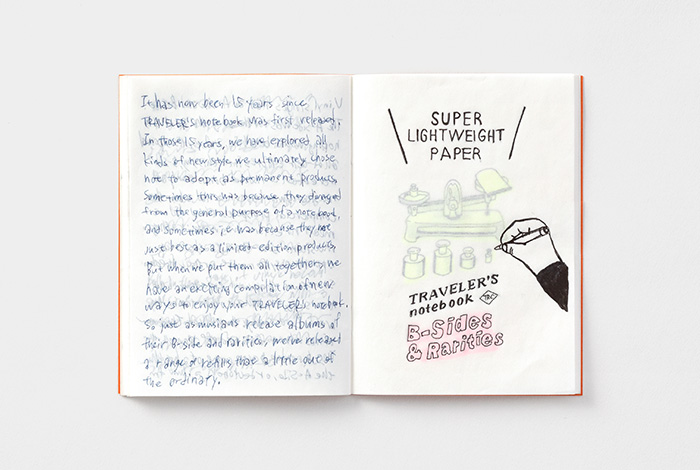 It has now been 15 years since
TRAVELER'S notebook was first released.
In those 15 years, we have explored all
kinds of new style we ultimately chose
not to adopt as permanent products.
Sometimes this was because they
from the general purpose of a notebook,
and sometimes it was because they
just best as a limited-edition products
But when we put them all together, we
have an exciting compilation of new
ways to enjoy your TRAVELER'S notebook.
So just as musicians release albums of
their B-side and rarities, we've released
a range of refills that a little out of
the ordinary.
SUPER
LIGHTWEIGHT
PAPER
TRAVELER'S
notebook TRC
B-Sides
& Rarities